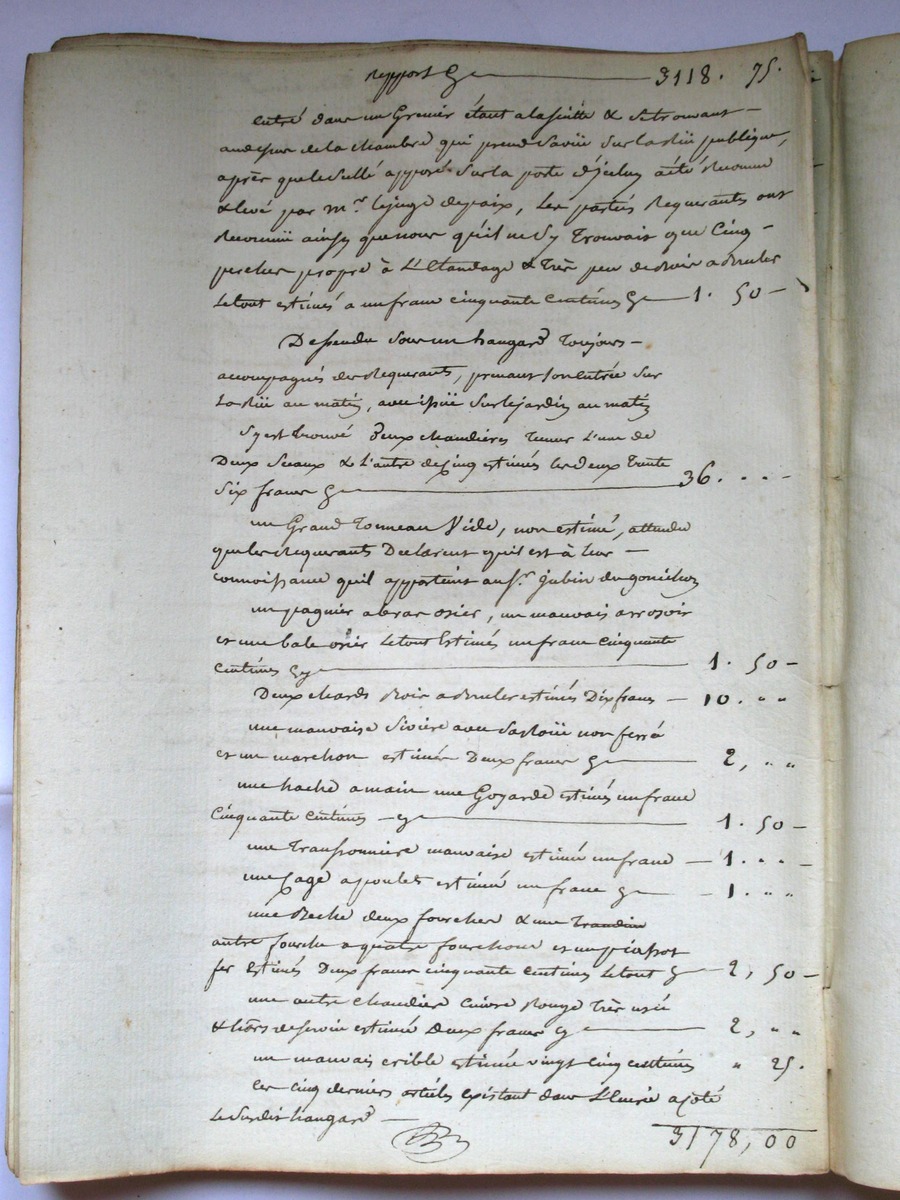 rapport 3118. 75.
entré dans un Grenier étant a la suitte & se trouvant
au dessus de la chambre qui prend sa vüe sur la rüe publique,
après que le sellé apposé sur la porte d'jceluy a été Reconnu
& levé par mr. le juge de paix, les partiés Requerants ont
Reconnü ainsy que nous qu'il ne s'y trouvait que Cinq
perches propre à L'Etandage & très peu de Bois a Bruler
Le tout estimés a un franc cinquante centimes 1. 50
Dessendu sous un hangard toujours
accompagnés des Requerants, prenant son entrée sur
La Rüe au matin, avec issüe sur le jardin au matin
s'y est trouvé deux chaudieres tenant L'une de
Deux Seaux & L'autre de cinq estimés les deux trente
six francs 36. . .
un Grand tonneau Vide, non estimé, attendu
que les Requerants Declarent qu'il est à leur
connoissance quil appartient au Sr. jubin du
un pagnier a bras osier, un mauvais arrosoir
et une bale osier Le tout Estimés un franc cinquante
centimes 1. 50
Deux chards Bois a Bruler estimés Dix francs 10. " "
une mauvaise siviere avec sa roüe non ferré
et un marchon estimés Deux francs 2, " "
une hache a main une Goyarde estimés un franc
cinquante centimes 1. 50
une Transsonniere mauvaise estimée un franc 1. " "
une cage a poulets estimée un franc 1. " "
une Beche deux fourches & une
autre fourche a quatre fourchons et un
fer Estimés Deux francs cinquante centimes Le tout 2, 50
une autre chaudiere Cuivre Rouge très usée
& hors de service estimée Deux francs 2, " "
un mauvais crible estimée vingt cinq centimes " 25.
les cinq derniers articles Existant dans L'Ecurie a coté
Le susdit hangard
3178,00